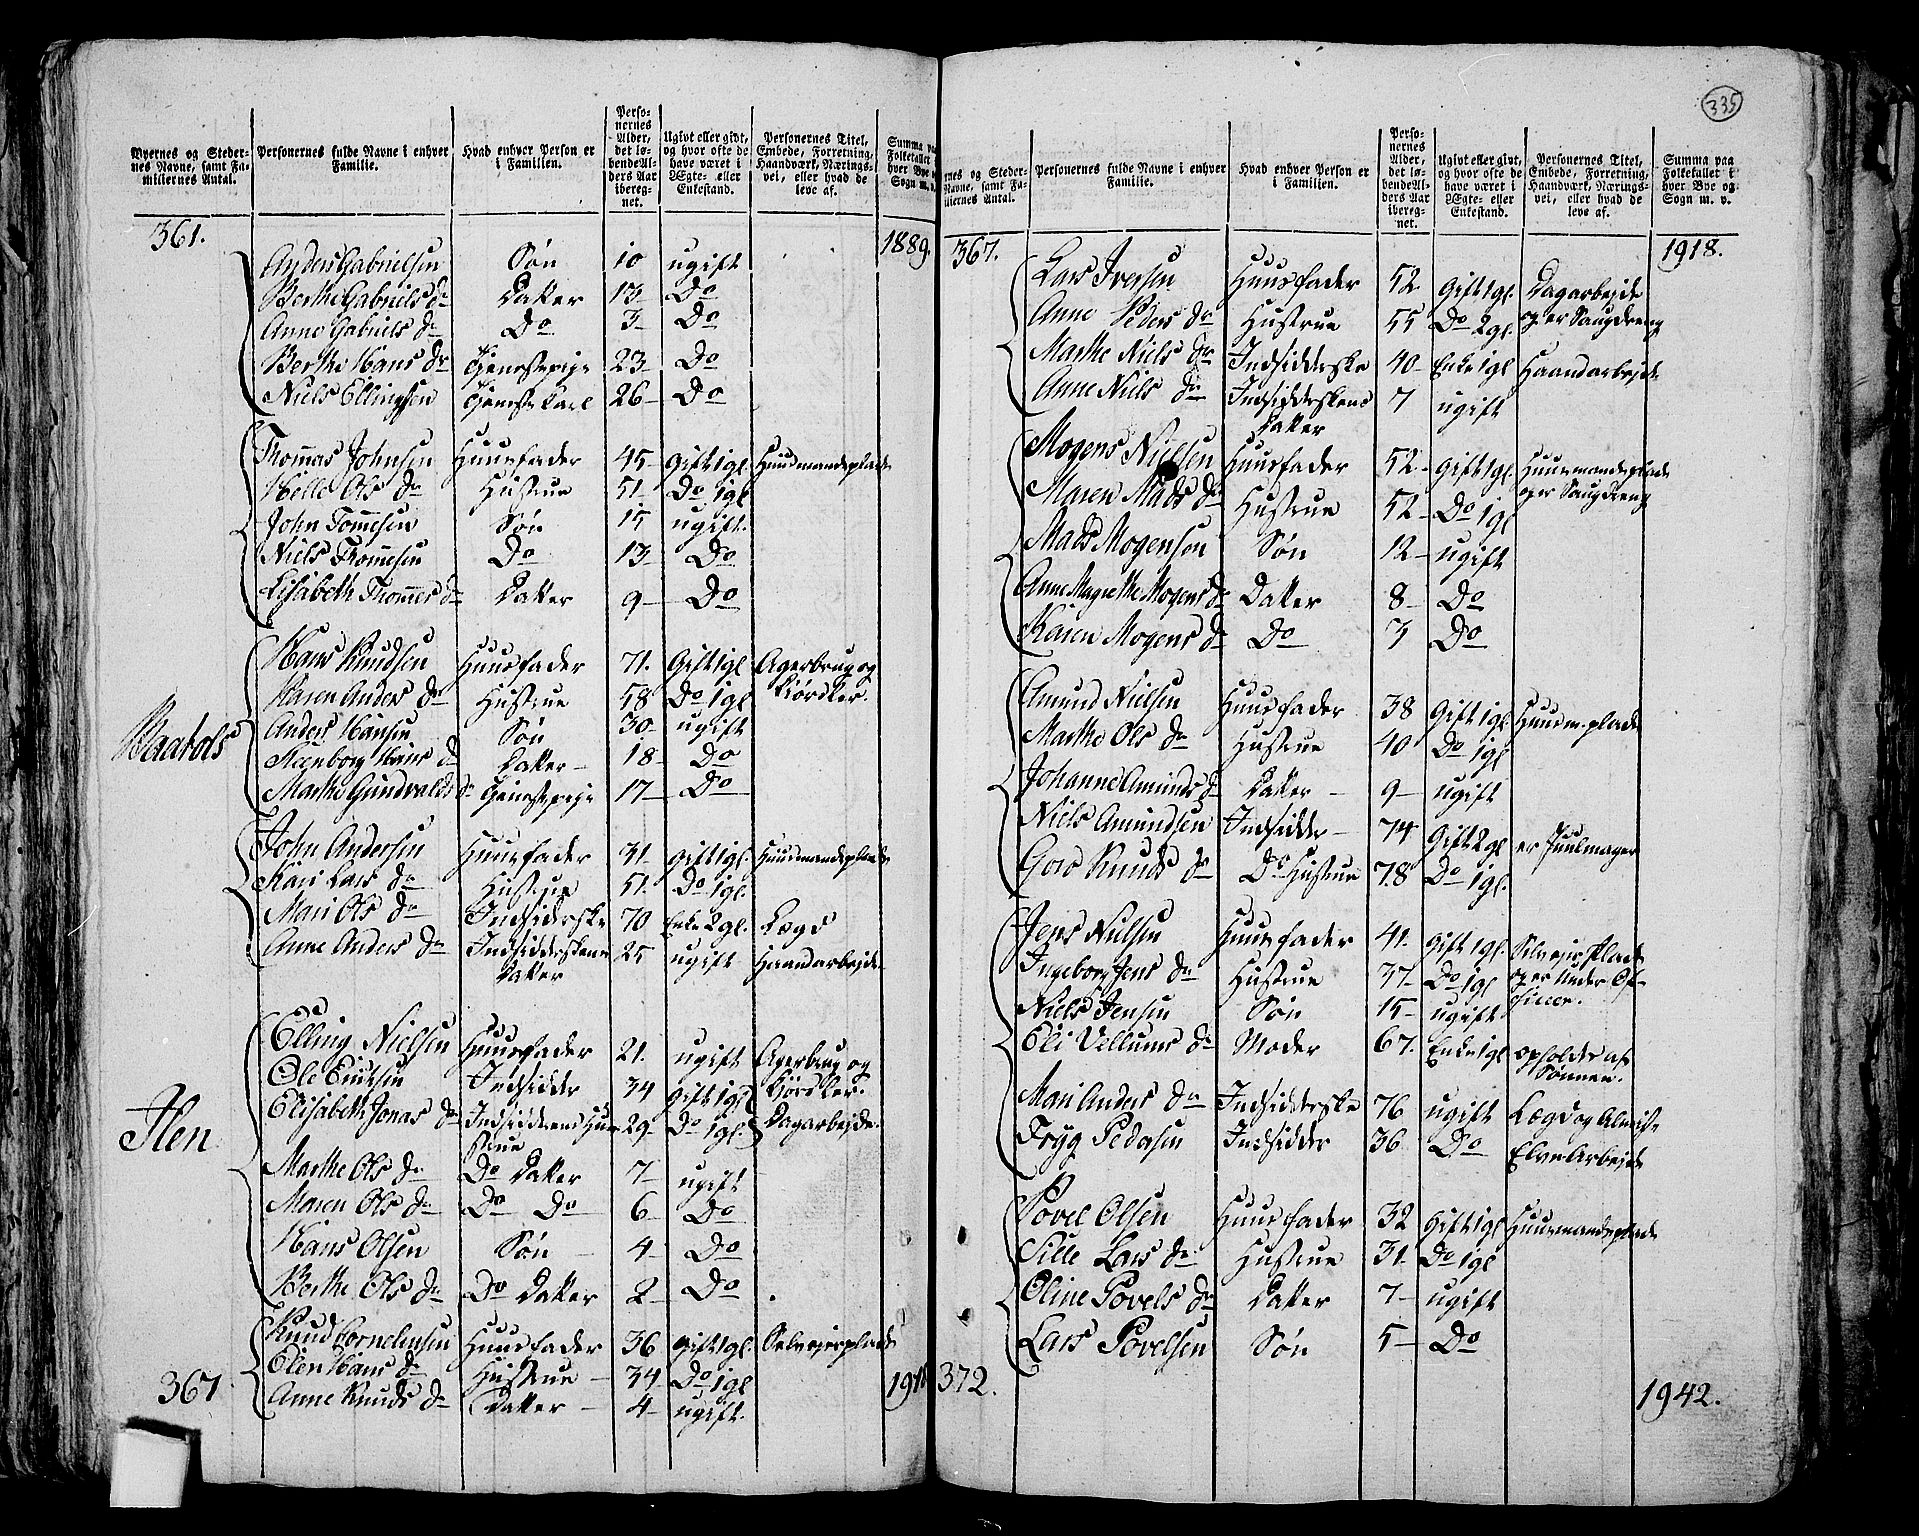 335
Byernes og Steder-
nes Navne, samt Fa-
miliernes Antal.
Personernes fulde Navne i enhver
Familie.
Hvad enhver Person er
i Familien.
Perso-
nernes
Alder,
det lø-
bende Al-
ders Aar
ibereg-
net.
Ugivt eller gidt,
og hvor ofte de
have været i
Ægte- eller
Enkestand.
Personernes Titel,
Embede, Forretning,
Haandværk, Nærings-
vei, eller hvad de
leve af.
Summa paa
Folketallet i
hver Bye
Sogn m. v.
361. 1889.
Anders Gabrielsen Søn 10 ugift
Berthe Gabriels Dr Datter 13 Do
Anne Gabriels Dr Do 3 Do
Berthe Hans Dr Tjenestepige 23 Do
Niels Ellingsen Tjeneste Karl 26 Do
Thommas Johnsen Huusfader 45 Gift 1 gl. Huusmandsplads
Helle Ols Dr Hustrue 51 Do 1 gl.
John Tommesen Søn 15 ugift.
Niels Thommesen Do 13 Do
Lisabeth Thommes Dr Datter 9 Do
Hans Knudsen Huusfader 71. Gift 1 gl Agerbrug og
Kiørsler.
Karen Anders Dr Hustrue 58 Do 1 gl
Baatols
Anders Hansen Søn 30 ugift
Steenborg Hans Dr Datter 18 Do
Marthe Gundvalds Dr Tjenestepige 17 Do
John Andersen Huusfader 31. Gift 1 gl. Huusmandsplads
Kari Lars Dr Hustrue 51. Do 1 gl.
Mari Ols Dr Indsidderske 70 Enke 2 gl. Lægd
Anne Anders Dr Indsidderskens 25 ugift Haandarbejde
Datter
Ilen
Elling Nielsen Huusfader 21. ugift Agerbrug og
Kiørsler.
Ole Ericksen Indsidder 34 Gift 1 gl
Elisabeth Jonas Dr Indsidderens Hu- 29 Do 1 gl. Dagarbejde.
strue
Marthe Ols Dr Do Datter 7 ugift
Maren Ols Dr Do Do 6 Do
Hans Olsen Søn 4 Do
Berthe Ols Dr Do Datter 2 Do
Knud Cornelius&shy;sen Huusfader 36 Gift 1 gl. Selvejerplads
Olen Hans Dr Hustrue 34 Do 1 gl
Anne Knuds Dr Datter 4 ugift.
367 1918
nes og Steder-
Navne, samt Fa-
iliernes Antal.
Personernes fulde Navne i enhver
Familie.
Hvad enhver Person er
i Familien.
Perso-
nernes
Alder,
det lø-
bende Al-
ders Aar
ibereg-
net.
Ugivt eller givt,
og hvor ofte de
have været i
Ægte- eller
Enkestand.
Personernes Titel,
Embede, Forretning,
Haandværk, Nærings-
vei, eller hvad de
leve af.
Summa paa
Folketallet i
hver Bye og
Sogn m. v.
367. 1918.
Lars Iversen Huusfader 52 Gift 1 gl. Dagarbejde
og er Saugdreng
Anne Peders Dr Hustrue 55 Do 2 gl.
Marthe Niels Dr Indsidderske 40 Enke 1 gl Haandarbejde
Anne Niels Dr Indsidderskens 7 ugift
Datter
Mogens Nielsen Huusfader 52 Gift 1 gl Huusmandsplads
og er Saugdreng
Maren Mads Dr Hustrue 52 Do 1 gl
Mads Mogensen Søn 12 ugift
Anne Magrethe Mogens Dr Datter 8 Do
Karen Mogens Dr Do 3 Do
Amund Nielsen Huusfader 38 Gift 1 gl. Huusm. plads
Marthe Ols Dr Hustrue 40 Do 1 gl
Johanne Amunds Dr Datter 9 ugift
Niels Amundsen Indsidder 74 Gift 2 gl er Juulmager
Goro Knuds Dr Do Hustrue 78 Do 1 gl.
Jens Nielsen Huusfader 41. Gift 1 gl. Selvejer Plads
og er Under Of-
ficeer.
Ingeborg Jens Dr Hustrue 37 Do 1 gl
Niels Jensen Søn 15 ugift
Eli Vellums Dr Moder 67. Enke 1 gl opholdes af
Sønnen.
Mari Anders Dr Indsidderske 76 ugift Lægd og Almisse
Tryg Pedersen Indsidder 36 Do Elvearbejde
Povel Olsen Huusfader 32 Gift 1 gl Huusmandsplads
Sille Lars Dr Hustrue 31. Do 1 gl
Oline Povels Dr Datter 7 ugift
Lars Povelsen Søn 5 Do
372. 1942.